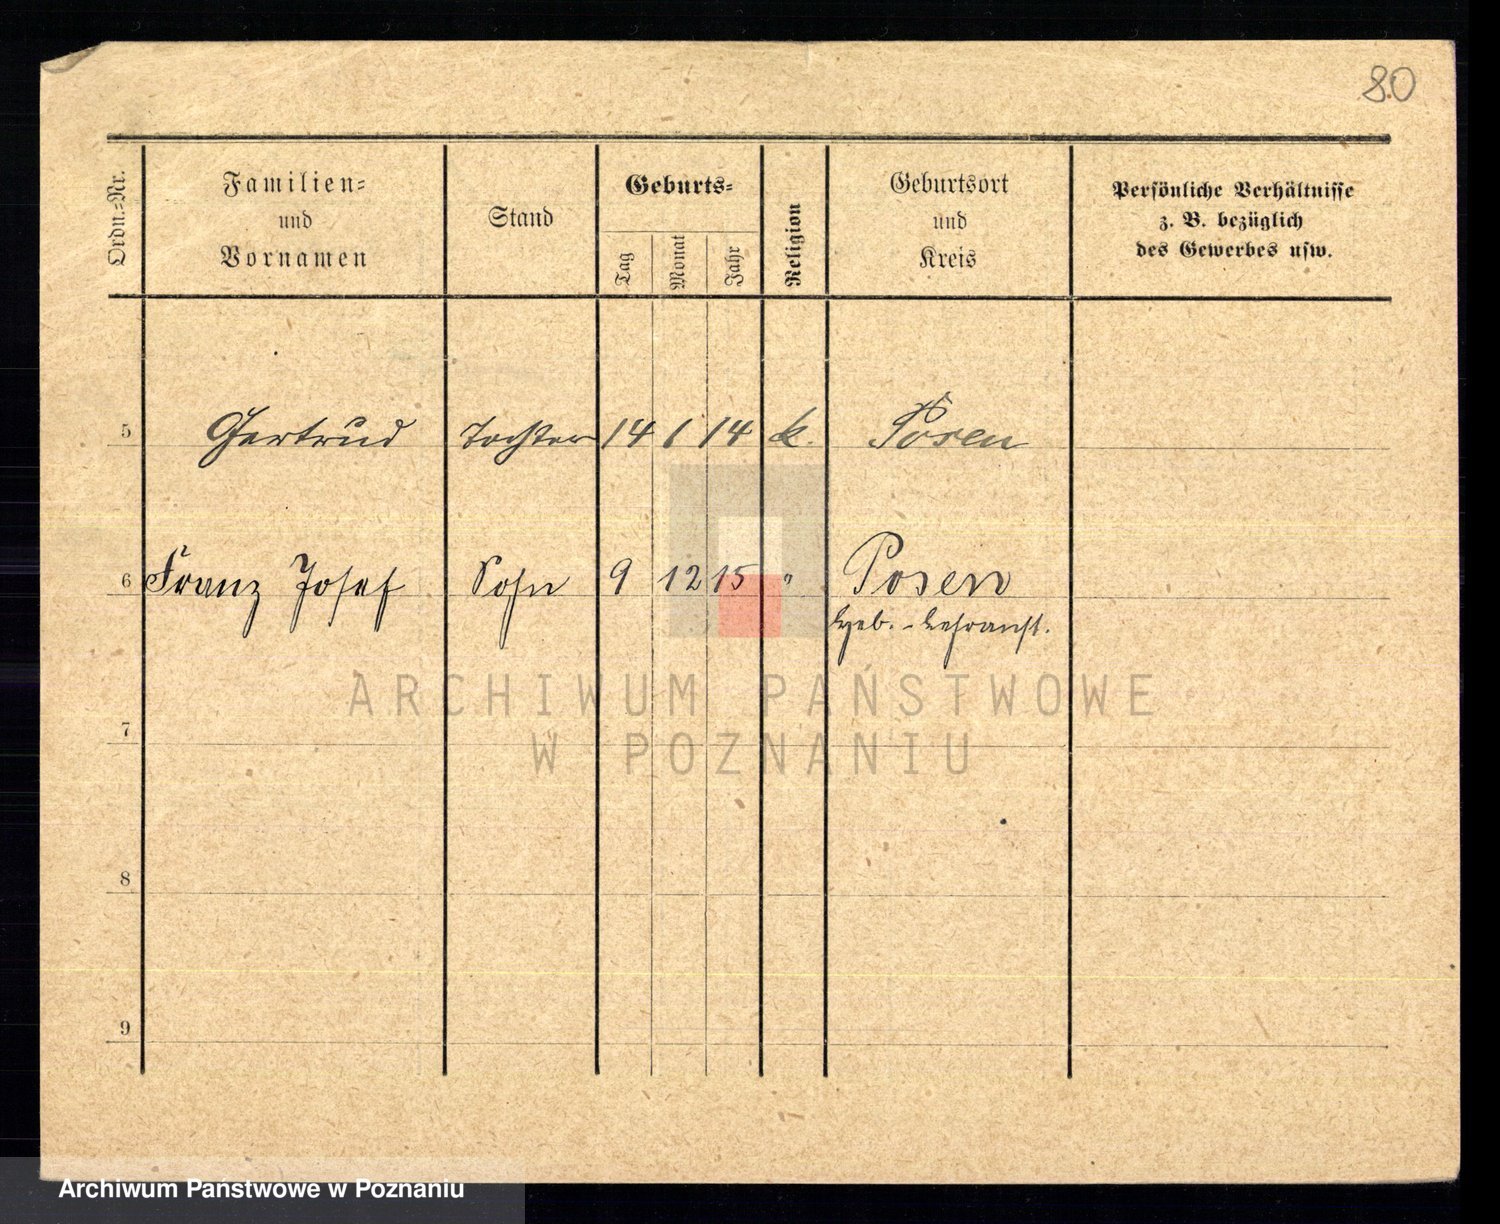 80
Ordn.-Nr.
Familien-
und
Vornamen
Stand
Geburts-
Tag
Monat
Jahr
Religion
Geburtsort
und
Kreis
Persönliche Verhältnisse
z. B. bezüglich
des Gewerbes usw.
5 Gertrud Tochter 14 1 14 k. Posen
6 Franz Josef Sohn 9 12 15 " Posen
Heb.-Lehranst.
7
8
9
ARCHIWUM PAŃSTWOWE
W POZNANIU
Archiwum Państwowe w Poznaniu